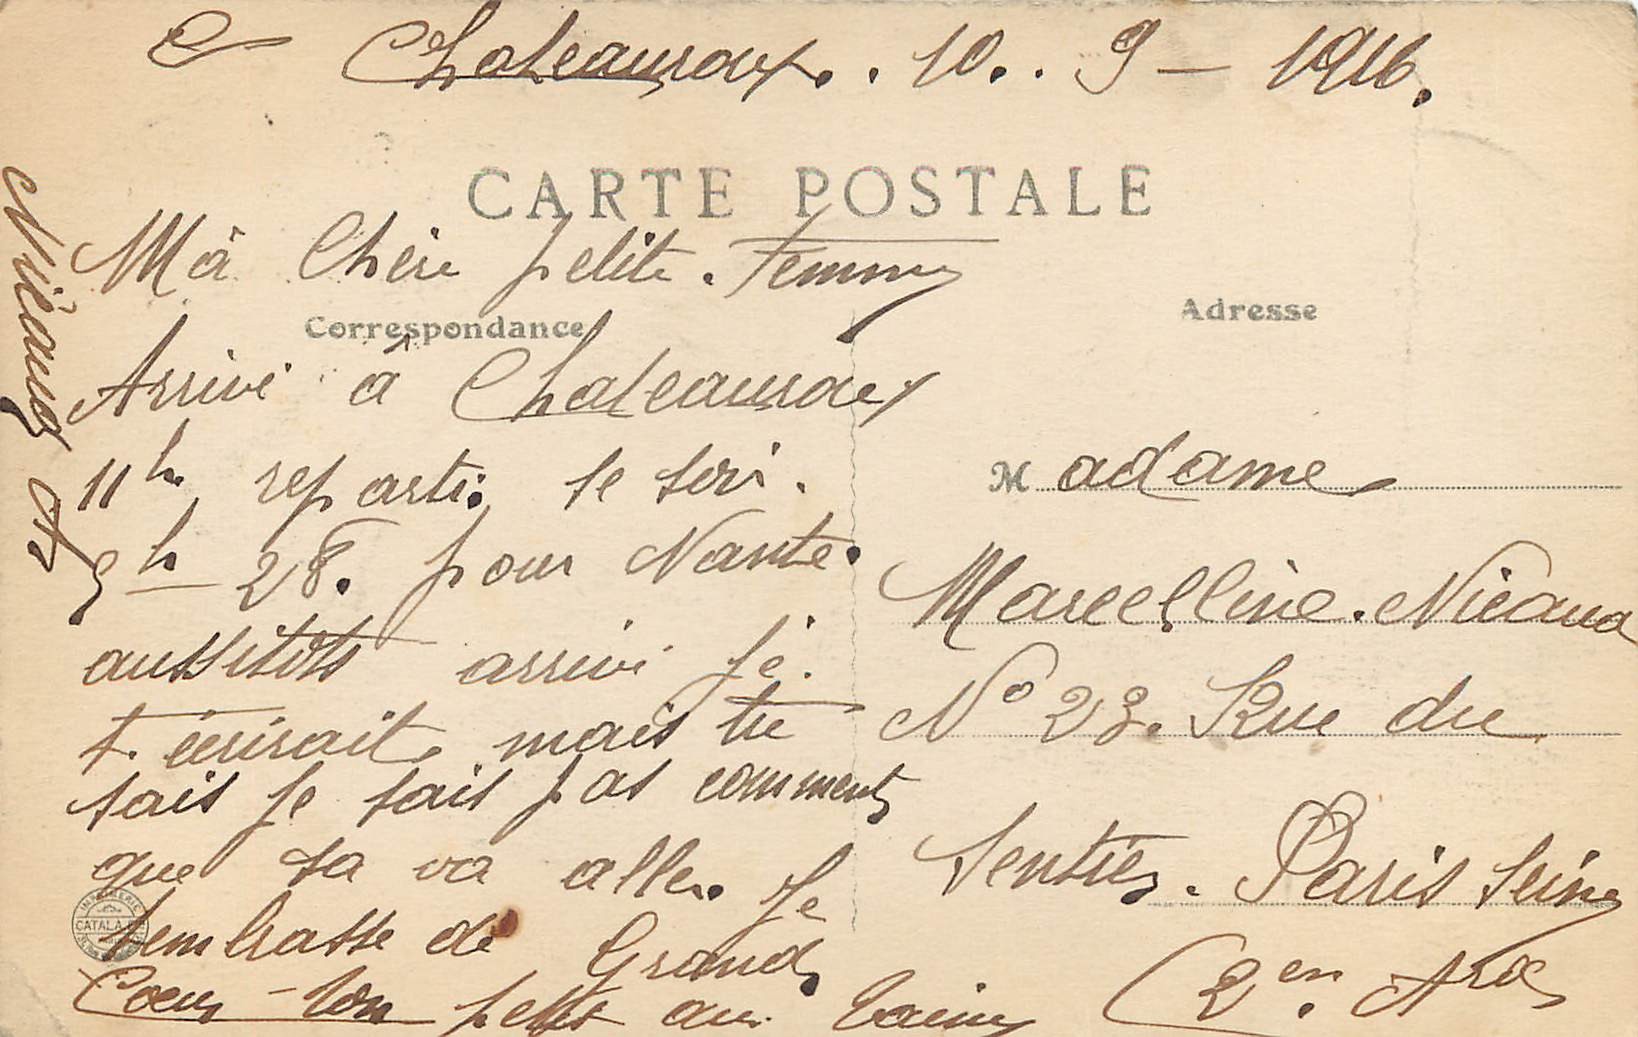 Chateauroux.. 10.. 9 - 1916.
CARTE POSTALE
Mà Chère petite. Femme
Correspondance
Arrivé à Chateauroux
11h reparti le soir.
9h 28. pour Nante.
aussitôts arrivé je.
t. écrirait mais tu
sais je sait pas comment
que sa va aller. Je
t'embrasse de Grand
Coeur ton petit au
Nicaud A
Adresse
Madame
Marcelline. Nicaud
No 23. Rue du
Sentier. Paris Seine
(2en. Ard
IMPRIMERIE
CATALA